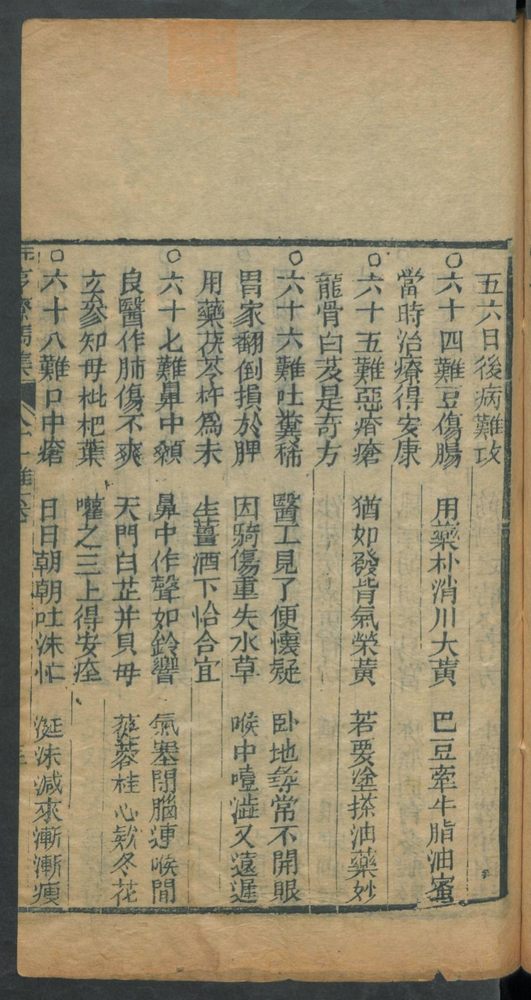 五六日後病難攻
○六十四難豆傷腸 用藥朴消川大黃 巴豆牽牛脂油蜜
當時治療得安康
○六十五難惡瘡瘡 猶如發背氣榮黃 若要塗搽油藥妙
龍骨白芨是奇方
○六十六難吐糞稀 醫工見了便懷疑 卧地尋常不開眼
胃家翻倒損於脾 因騎傷重失水草 喉中噎澁又遠遲
用藥茯苓杵為末 生薑酒下恰合宜
○六十七難鼻中顙 鼻中作聲如鈴響 氣塞閉腦連喉間
良醫作肺傷不爽 天門白芷并貝母 蓉桂心款冬花
玄參知毋枇杷葉 嚾之三上得安痊
○六十八難口中瘡 日日朝朝吐沫忙 涎沫減來漸漸瘐
元亨療馬集